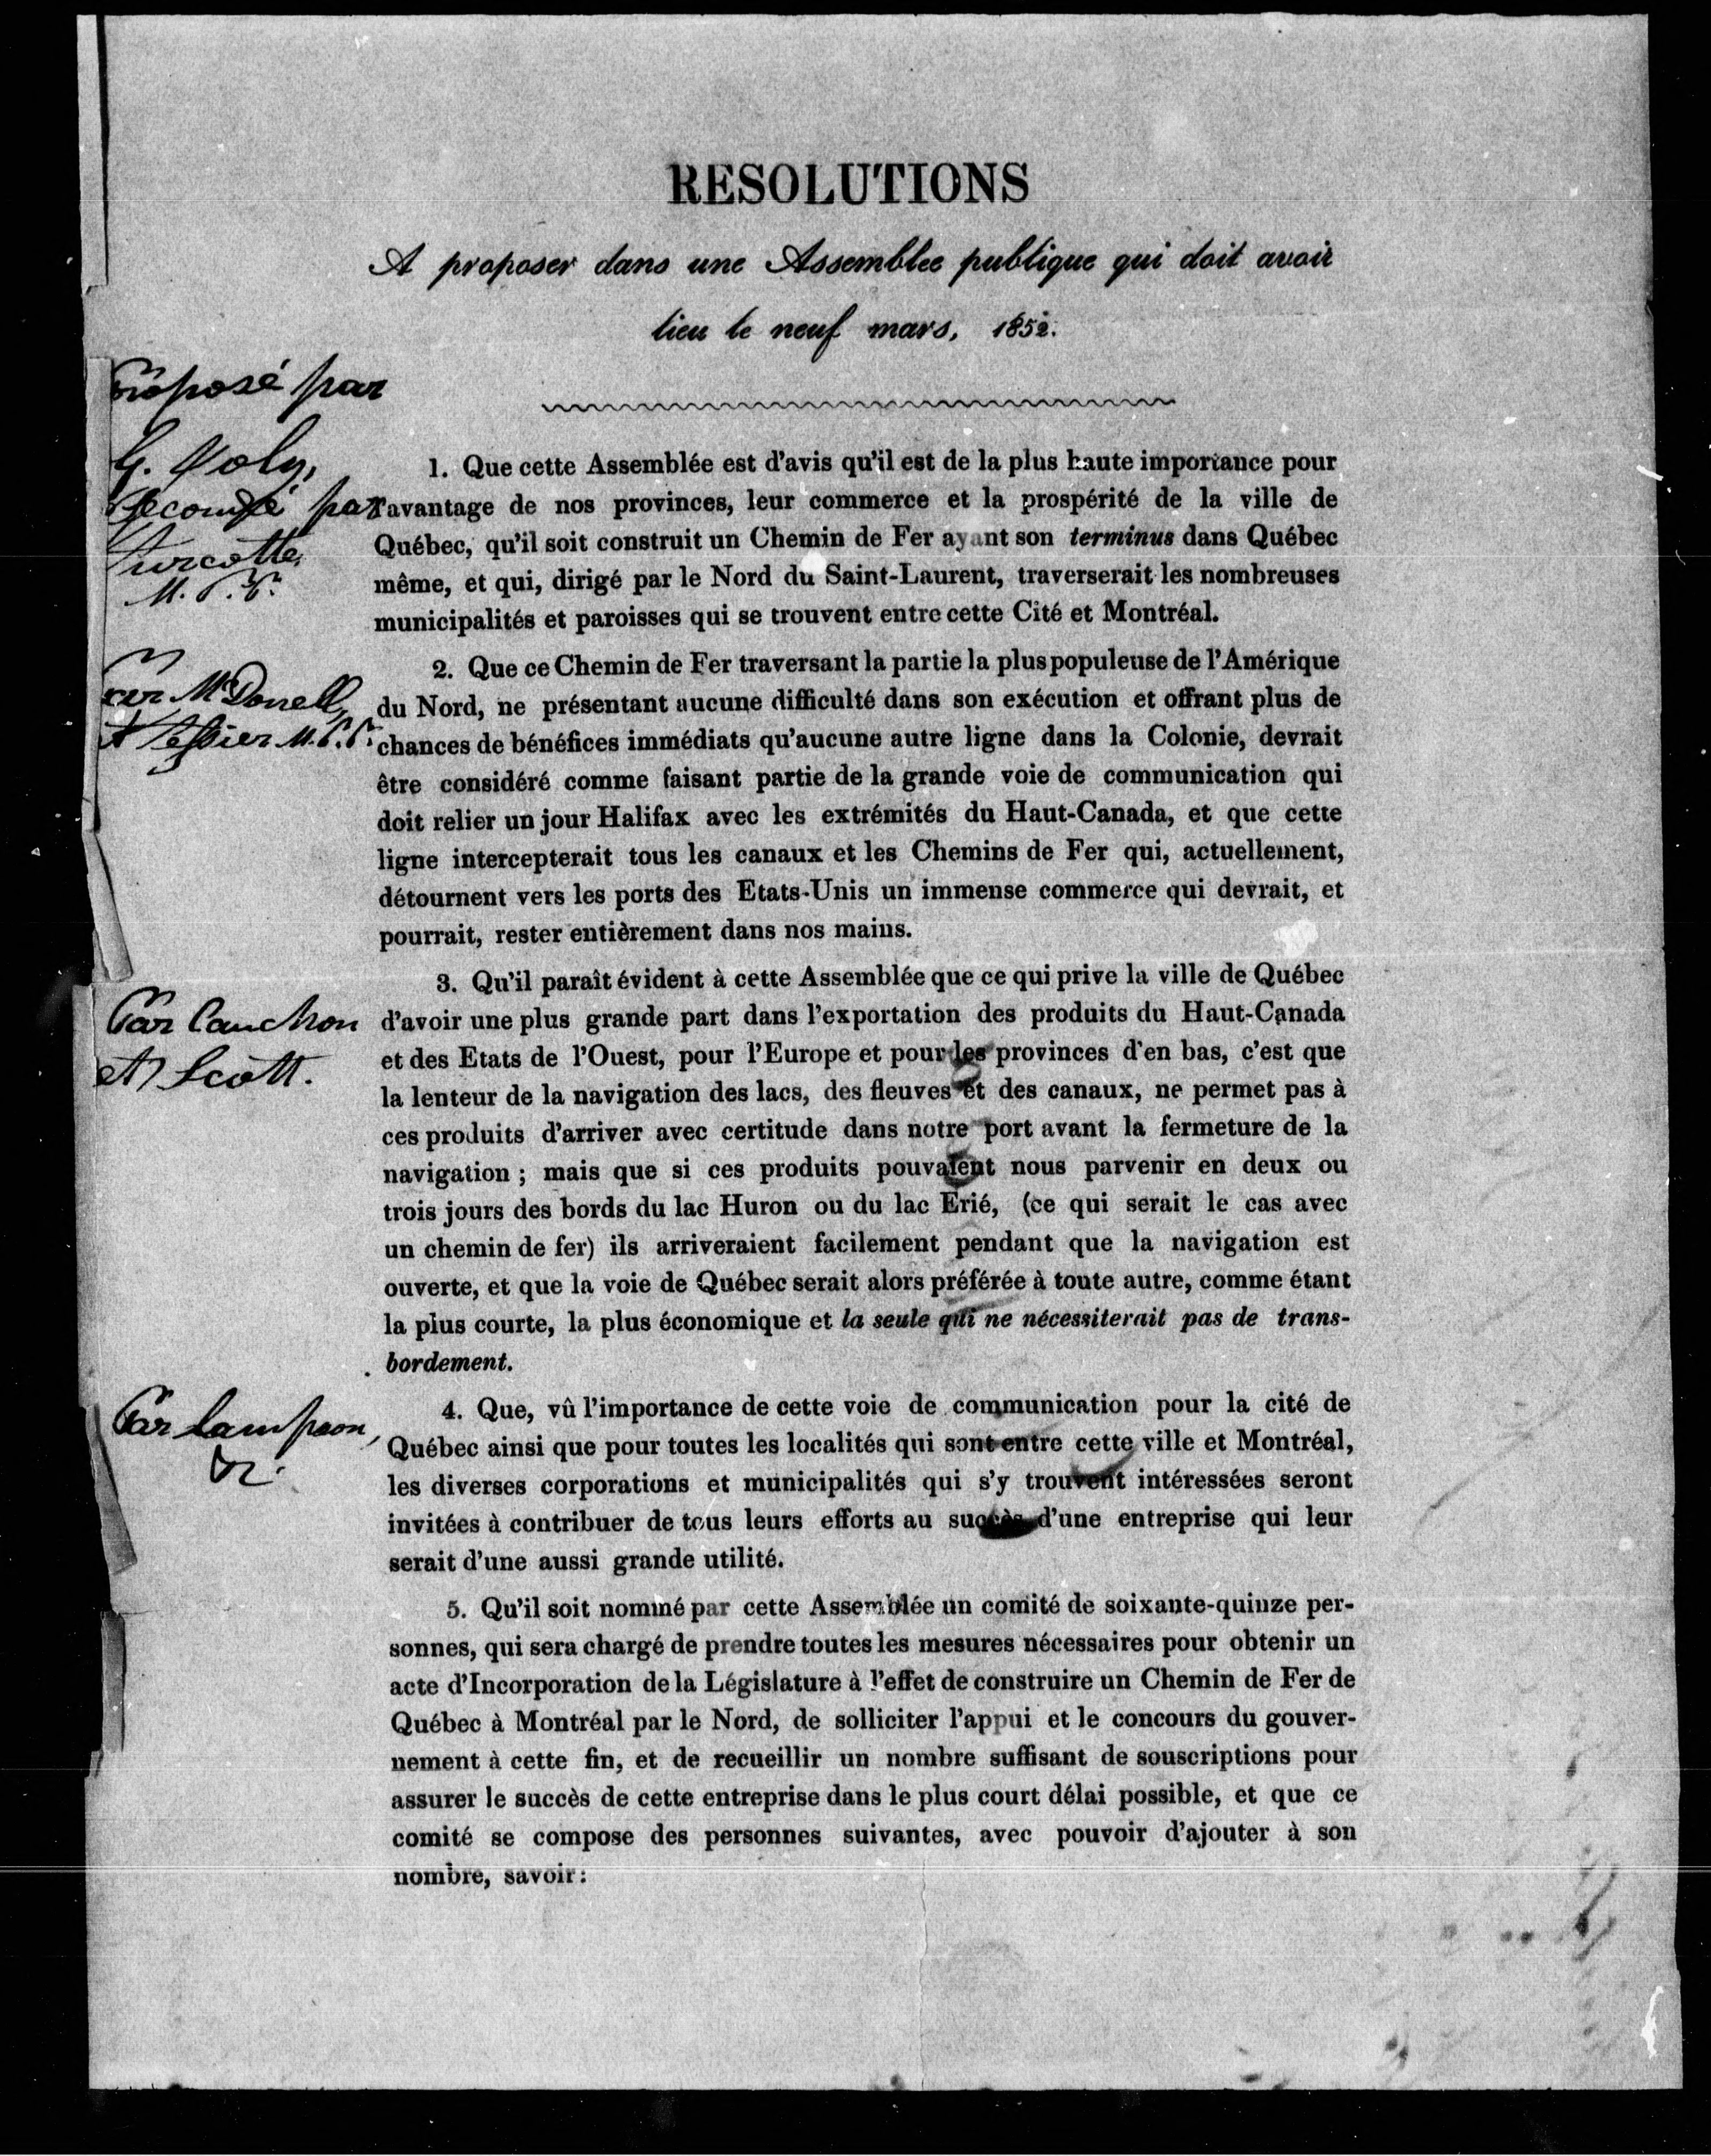 RESOLUTIONS
A proposer dans une Assemblee publique qui doit avoir
lieu le neuf mars, 1852.
Proposé par
G. Joly,
Secondé par
Turcotte
M. P. P.
1. Que cette Assemblée est d'avis qu'il est de la plus haute importance pour
l'avantage de nos provinces, leur commerce et la prospérité de la ville de
Québec, qu'il soit construit un Chemin de Fer ayant son terminus dans Québec
même, et qui, dirigé par le Nord du Saint-Laurent, traverserait les nombreuses
municipalités et paroisses qui se trouvent entre cette Cité et Montréal.
Par McDonell,
& Tessier M.P.P.
2. Que ce Chemin de Fer traversant la partie la plus populeuse de l'Amérique
du Nord, ne présentant aucune difficulté dans son exécution et offrant plus de
chances de bénéfices immédiats qu'aucune autre ligne dans la Colonie, devrait
être considéré comme faisant partie de la grande voie de communication qui
doit relier un jour Halifax avec les extrémités du Haut-Canada, et que cette
ligne intercepterait tous les canaux et les Chemins de Fer qui, actuellement,
détournent vers les ports des Etats-Unis un immense commerce qui devrait, et
pourrait, rester entièrement dans nos mains.
Par Cauchon
et Scott.
3. Qu'il paraît évident à cette Assemblée que ce qui prive la ville de Québec
d'avoir une plus grande part dans l'exportation des produits du Haut-Canada
et des Etats de l'Ouest, pour l'Europe et pour les provinces d'en bas, c'est que
la lenteur de la navigation des lacs, des fleuves et des canaux, ne permet pas à
ces produits d'arriver avec certitude dans notre port avant la fermeture de la
navigation ; mais que si ces produits pouvaient nous parvenir en deux ou
trois jours des bords du lac Huron ou du lac Erié, (ce qui serait le cas avec
un chemin de fer) ils arriveraient facilement pendant que la navigation est
ouverte, et que la voie de Québec serait alors préférée à toute autre, comme étant
la plus courte, la plus économique et la seule qui ne nécessiterait pas de trans-
bordement.
Par Lampson,
&
4. Que, vû l'importance de cette voie de communication pour la cité de
Québec ainsi que pour toutes les localités qui sont entre cette ville et Montréal,
les diverses corporations et municipalités qui s'y trouvent intéressées seront
invitées à contribuer de tous leurs efforts au succès d'une entreprise qui leur
serait d'une aussi grande utilité.
5. Qu'il soit nommé par cette Assemblée un comité de soixante-quinze per-
sonnes, qui sera chargé de prendre toutes les mesures nécessaires pour obtenir un
acte d'Incorporation de la Législature à l'effet de construire un Chemin de Fer de
Québec à Montréal par le Nord, de solliciter l'appui et le concours du gouver-
nement à cette fin, et de recueillir un nombre suffisant de souscriptions pour
assurer le succès de cette entreprise dans le plus court délai possible, et que ce
comité se compose des personnes suivantes, avec pouvoir d'ajouter à son
nombre, savoir: